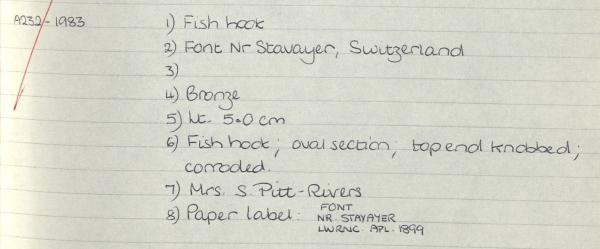 A232-1983 1) Fish hook
2) Font Nr Stavayer, Switzerland
3)
4) Bronze
5) Lt. 5.0 cm
6) Fish hook; oval section; top end knobbed;
corroded.
7) Mrs. S. Pitt-Rivers
8) Paper label: FONT
NR. STAYAYER
LWRNC. APL. 1899